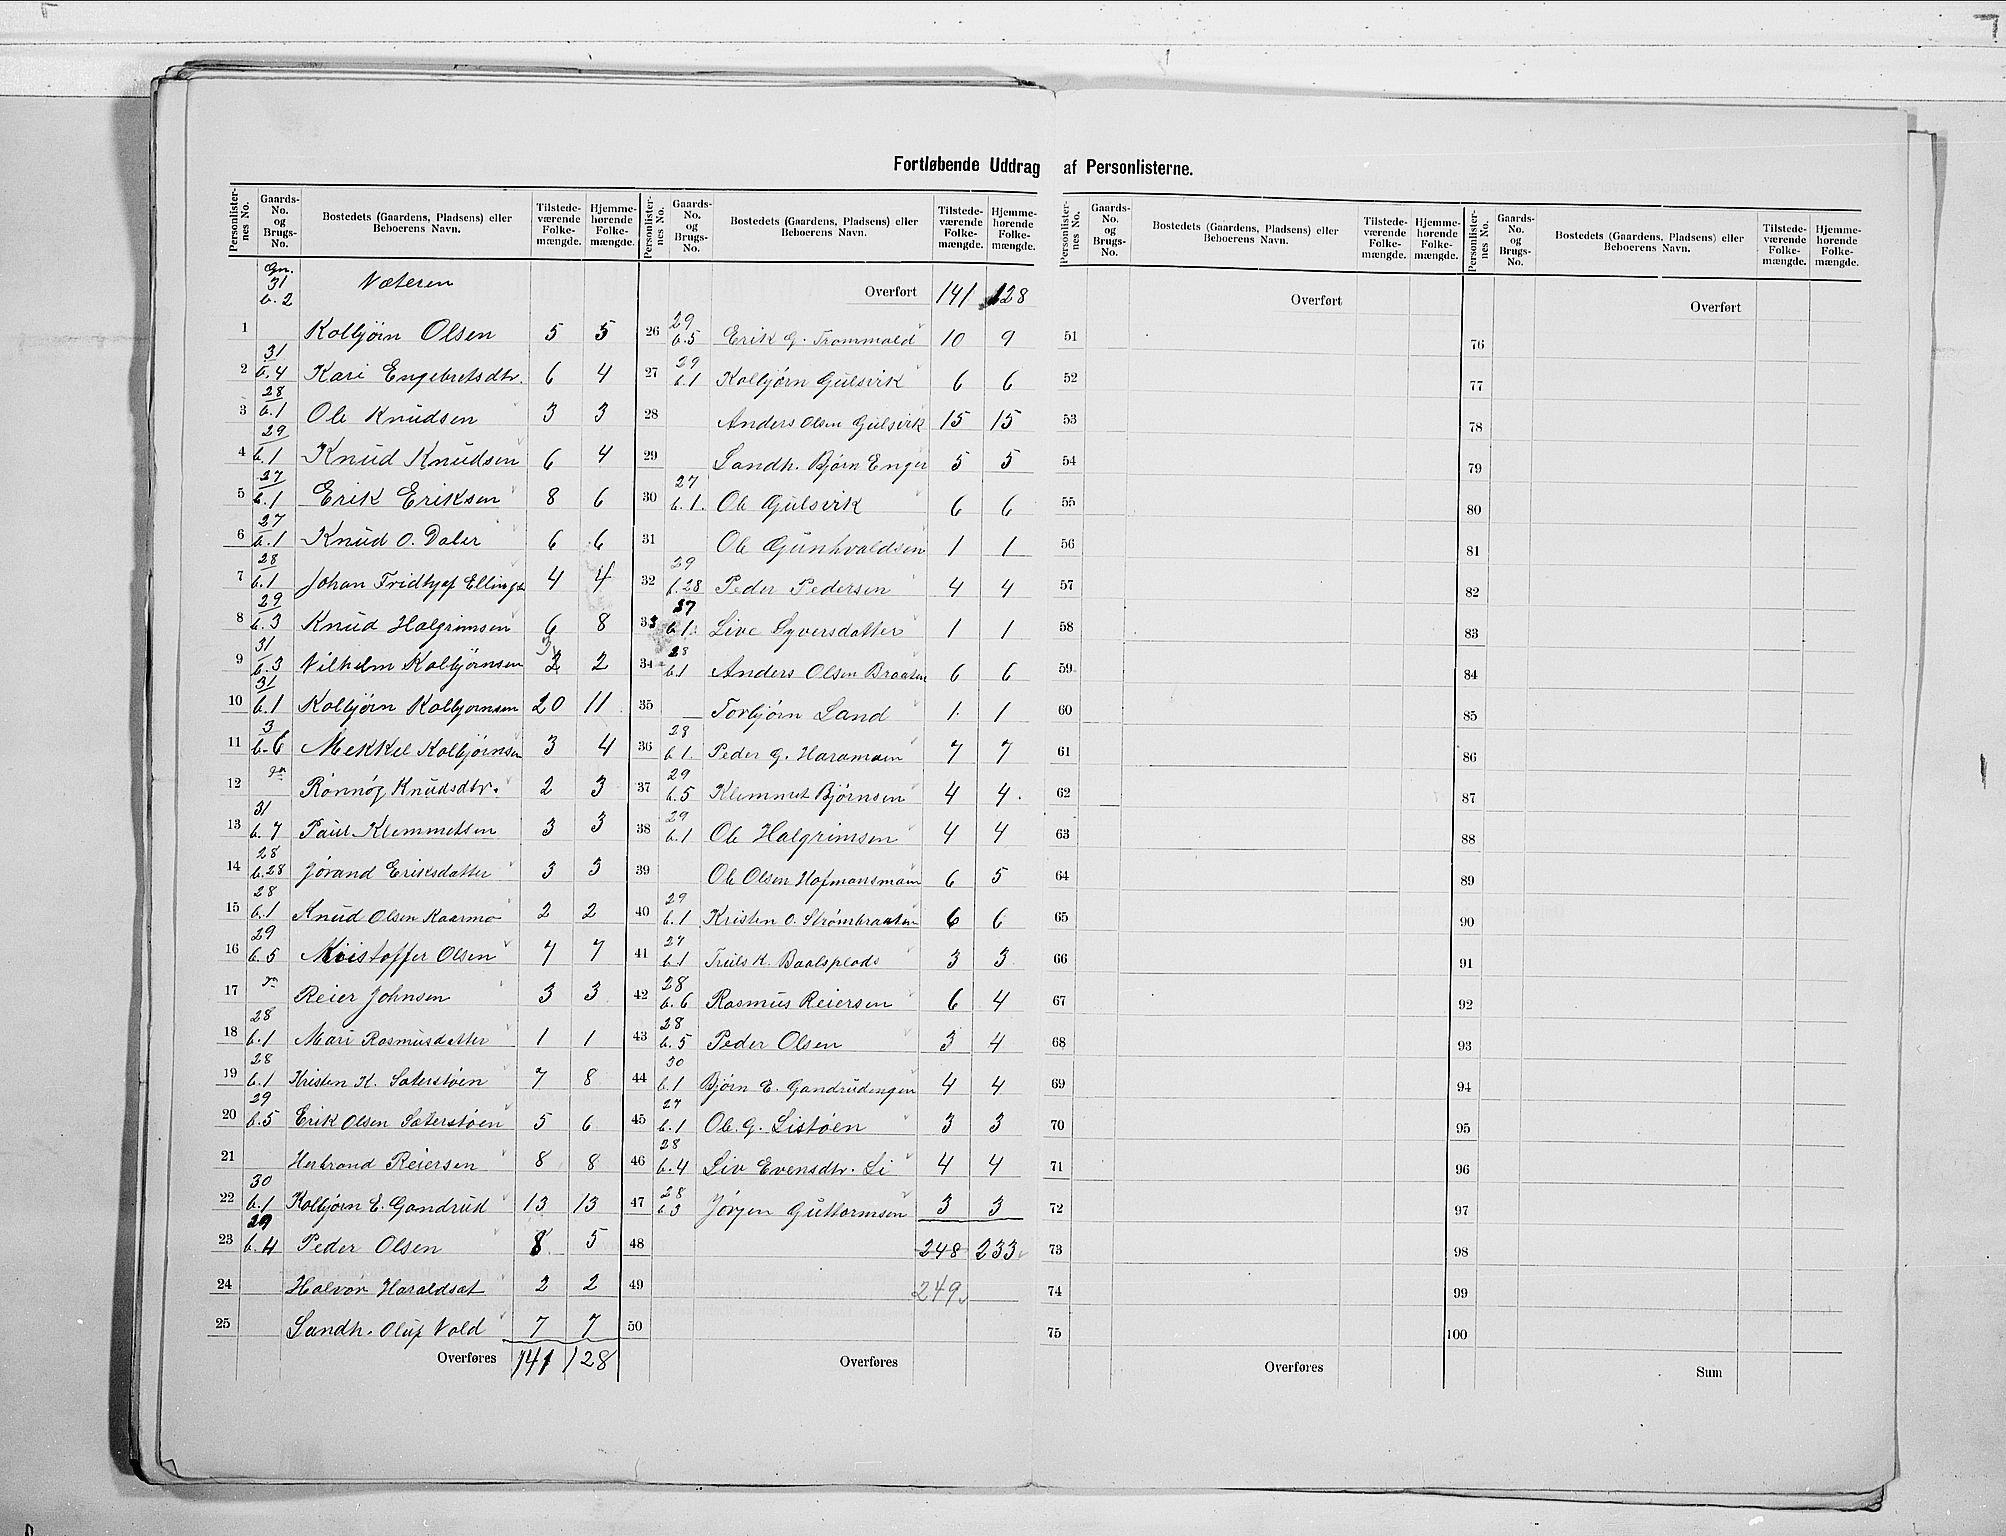 Fortløbende Uddrag af Personlisterne.
Personlister-nes No. Gaards-No. og Brugs-No. Bostedets (Gaardens, Pladsens) eller Beboerens Navn. Tilstede-værende Folke-mængde. Hjemme-hørende Folke-mængde.
Gn. 31 b. 2 Næteren
1 Kolbjørn Olsen 5 5
2 31 b.4 Kari Engebretsdtr. 6 4
3 28 b.1 Ole Knudsen 3 3
4 29 b.1 Knud Knudsen 6 4
5 27 b.1 Erik Eriksen 8 6
6 27 b.1 Knud O. Daler 6 6
7 28 b.1 Johan Fridtjof Ellings 4 4
8 29 b.3 Knud Halgrimsen 6 8
9 31 b.3 Vilhelm Kolbjørnsen 3 2 2
10 31 b.1 Kolbjørn Kolbjørnsen 20 11
11 3 b.6 Mekkel Kolbjørnsen 3 4
12 Rønnøg Knudsdtr. 2 3
13 31 b.7 Paul Klemmetsen 3 3
14 28 b.28 Jørand Eriksdatter 3 3
15 28 b.1 Knud Olsen Kaarmo 2 2
16 29 b.5 Kristoffer Olsen 7 7
17 Reier Johnsen 3 3
18 28 b.1 Mari Rasmusdatter 1 1
19 28 b.1 Kristen K. Sæterstøen 7 8
20 29 b.5 Erik Olsen Sæterstøen 5 6
21 Herbrand Reiersen 8 8
22 30 b.1 Kolbjørn E. Gandrud 13 13
23 29 b.4 Peder Olsen 8 5
24 Halvor Haraldset 2 2
25 Landh. Oluf Vold 7 7
Overføres 141 128
Personlister-nes No. Gaards-No. og Brugs-No. Bostedets (Gaardens, Pladsens) eller Beboerens Navn. Tilstede-værende Folke-mængde. Hjemme-hørende Folke-mængde.
Overført 141 128
26 29 b.5 Erik G. Trommald 10 9
27 29 b.1 Kolbjørn Gulsvik 6 6
28 Anders Olsen Gulsvik 15 15
29 Landh. Bjørn Enger 5 5
30 27 b.1. Ole Gulsvik 6 6
31 Ole Gunhvaldsen 1 1
32 29 b.28 Peder Pedersen 4 4
33 27 b.1. Live Syversdatter 1 1
34 28 b.1 Anders Olsen Braaten 6 6
35 Torbjørn Land 1. 1
36 28 b.1. Peder G. Haramoen 7 7
37 29 b.5 Klemmet Bjørnsen 4 4.
38 29 b.1 Ole Halgrimsen 4 4
39 Ole Olsen Hofmansmoen 6 5
40 29 b.1 Kristen O. Strømbraaten 6 6
41 27 b.1 Truls K. Baalsplads 3 3
42 28 b.6 Rasmus Reiersen 6 4
43 28 b.5 Peder Olsen 3 4
44 30 b.1 Bjørn E. Gandrudengen 4 4
45 27 b.1 Ole. G. Listøen 3 3
46 28 b.4 Liv Evensdtr. Li 4 4
47 28 b.3 Jørgen Guttormsen 3 3
48 248 233
49 249
50
Overføres
Personlister-nes No. Gaards-No. og Brugs-No. Bostedets (Gaardens, Pladsens) eller Beboerens Navn. Tilstede-værende Folke-mængde. Hjemme-hørende Folke-mængde.
Overført
51
52
53
54
55
56
57
58
59
60
61
62
63
64
65
66
67
68
69
70
71
72
73
74
75
Overføres
Personlister-nes No. Gaards-No. og Brugs-No. Bostedets (Gaardens, Pladsens) eller Beboerens Navn. Tilstede-værende Folke-mængde. Hjemme-hørende Folke-mængde.
Overført
76
77
78
79
80
81
82
83
84
85
86
87
88
89
90
91
92
93
94
95
96
97
98
99
100
Sum